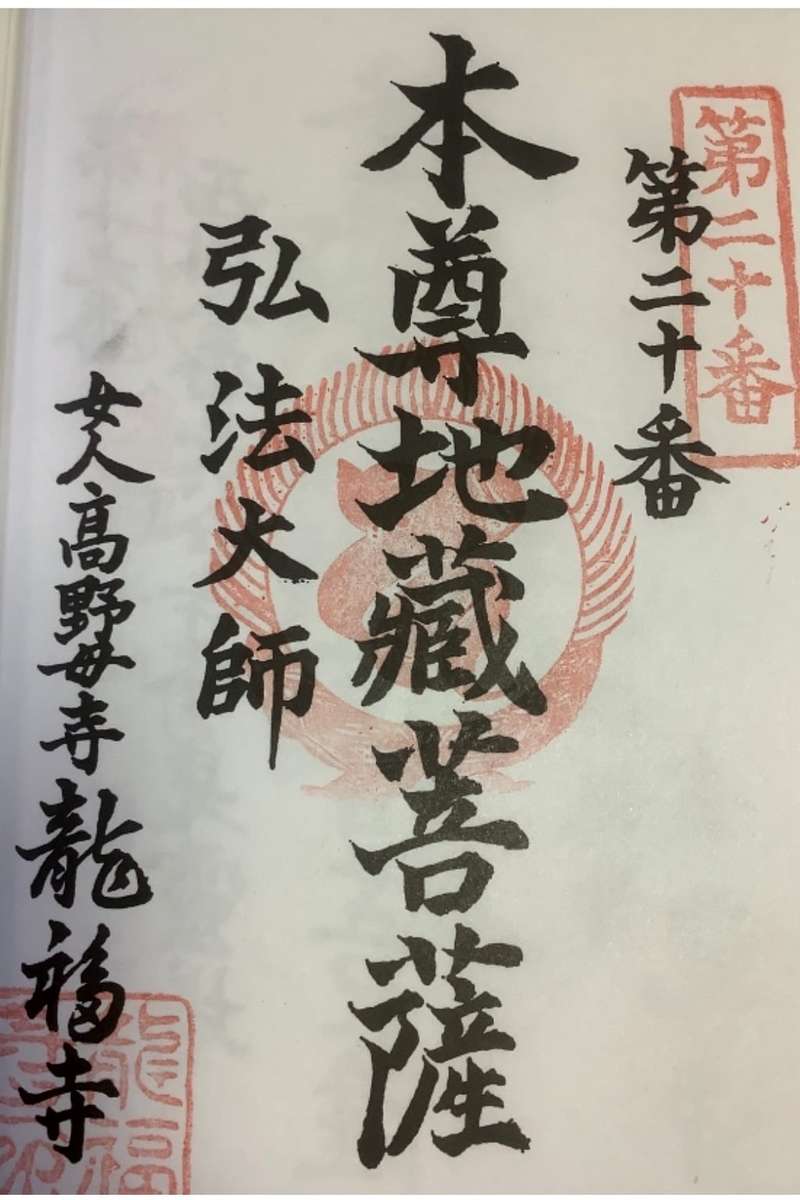 第二十番
第二十番
本尊地藏菩薩
弘法大師
女人高野毋寺龍福寺
龍福